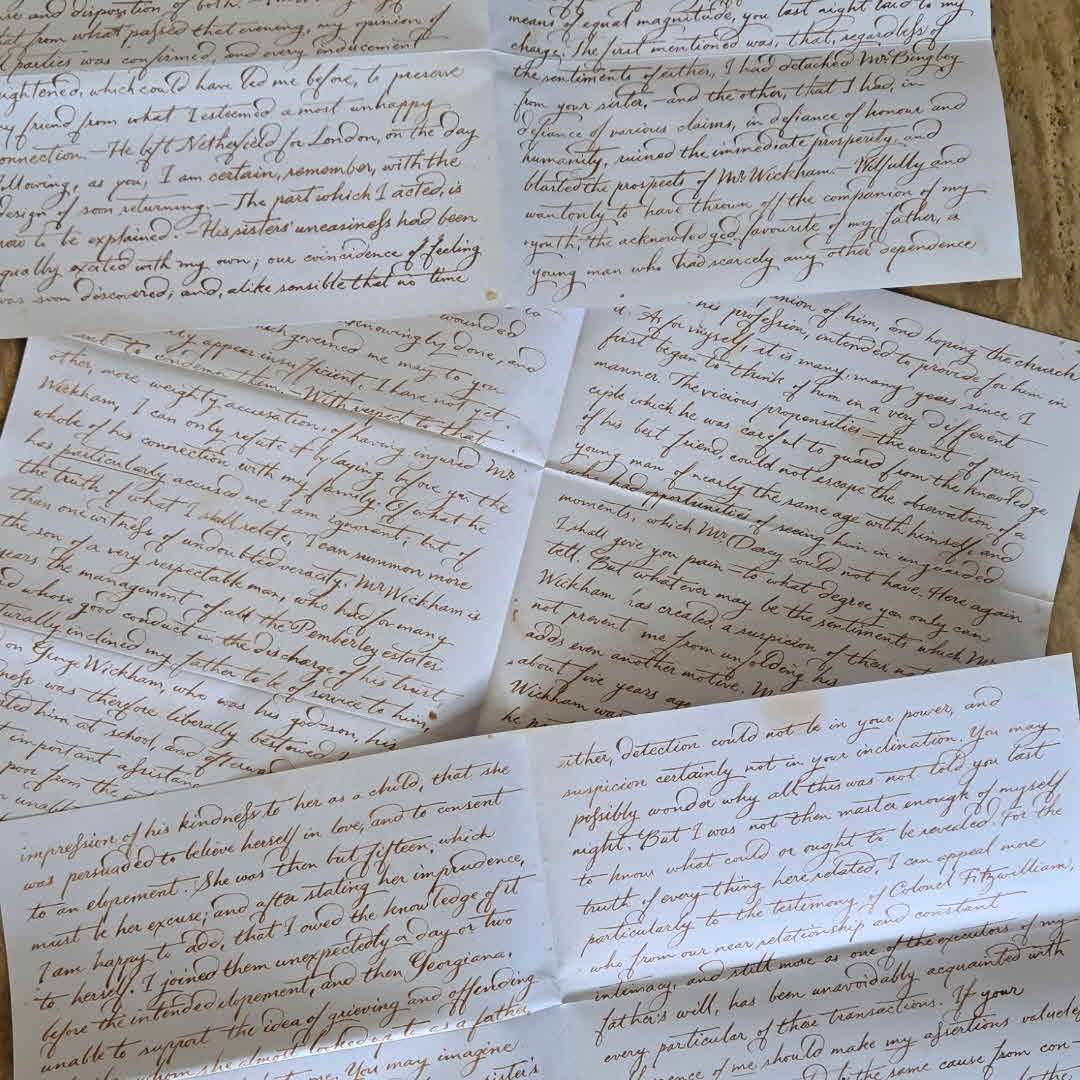 and disposition of both. — The
that from what passed that evening, my opinion of
parties was confirmed, and every inducement
heightened, which could have led me before, to preserve
my friend from what I esteemed a most unhappy
connection. — He left Netherfield for London, on the day
following, as you, I am certain, remember, with the
design of soon returning. — The part which I acted, is
now to be explained. — His sisters' uneasiness had been
equally excited with my own; our coincidence of feeling
was soon discovered; and, alike sensible that no time
means of equal magnitude, you last night laid to my
charge. The first mentioned was, that, regardless of
the sentiments of either, I had detached Mr Bingley
from your sister, — and the other, that I had, in
defiance of various claims, in defiance of honour and
humanity, ruined the immediate prosperity, and
blasted the prospects of Mr Wickham. — Wilfully and
wantonly to have thrown off the companion of my
youth, the acknowledged favourite of my father, a
young man who had scarcely any other dependence
wounded
knowingly done, and
which governed me may to you
appear insufficient, I have not yet
to condemn them. — With respect to that
other, more weighty accusation, of having injured Mr
Wickham, I can only refute it by laying before you the
whole of his connection with my family. Of what he
has particularly accused me I am ignorant; but of
the truth of what I shall relate, I can summon more
than one witness of undoubted veracity. Mr Wickham is
the son of a very respectable man, who had for many
years the management of all the Pemberley estates
whose good conduct in the discharge of his trust,
naturally inclined my father to be of service to him,
on George Wickham, who was his godson, his
was therefore liberally bestowed
him at school, and
important assistan
poor from the
opinion of him, and hoping the church
his profession, intended to provide for him in
it. As for myself, it is many, many years since I
first began to think of him in a very different
manner. The vicious propensities — the want of prin-
ciple which he was careful to guard from the knowledge
of his best friend, could not escape the observation of a
young man of nearly the same age with himself, and
had opportunities of seeing him in unguarded
moments, which Mr Darcy could not have. Here again
I shall give you pain — to what degree you only can
tell. But whatever may be the sentiments which Mr
Wickham has created, a suspicion of their
not prevent me from unfolding his
adds even another motive.
about five years ago
Wickham was
impression of his kindness to her as a child, that she
was persuaded to believe herself in love, and to consent
to an elopement. She was then but fifteen, which
must be her excuse; and after stating her imprudence,
I am happy to add, that I owed the knowledge of it
to herself. I joined them unexpectedly a day or two
before the intended elopement, and then Georgiana,
unable to support the idea of grieving and offending
whom she almost looked up to as a father,
You may imagine
sister's
either, detection could not be in your power, and
suspicion certainly not in your inclination. You may
possibly wonder why all this was not told you last
night. But I was not then master enough of myself
to know what could or ought to be revealed. For the
truth of every thing here related, I can appeal more
particularly to the testimony of Colonel Fitzwilliam,
who from our near relationship and constant
intimacy, and still more as one of the executors of my
father's will, has been unavoidably acquainted with
every particular of these transactions. If your
of me should make my assertions valueless,
the same cause from con-